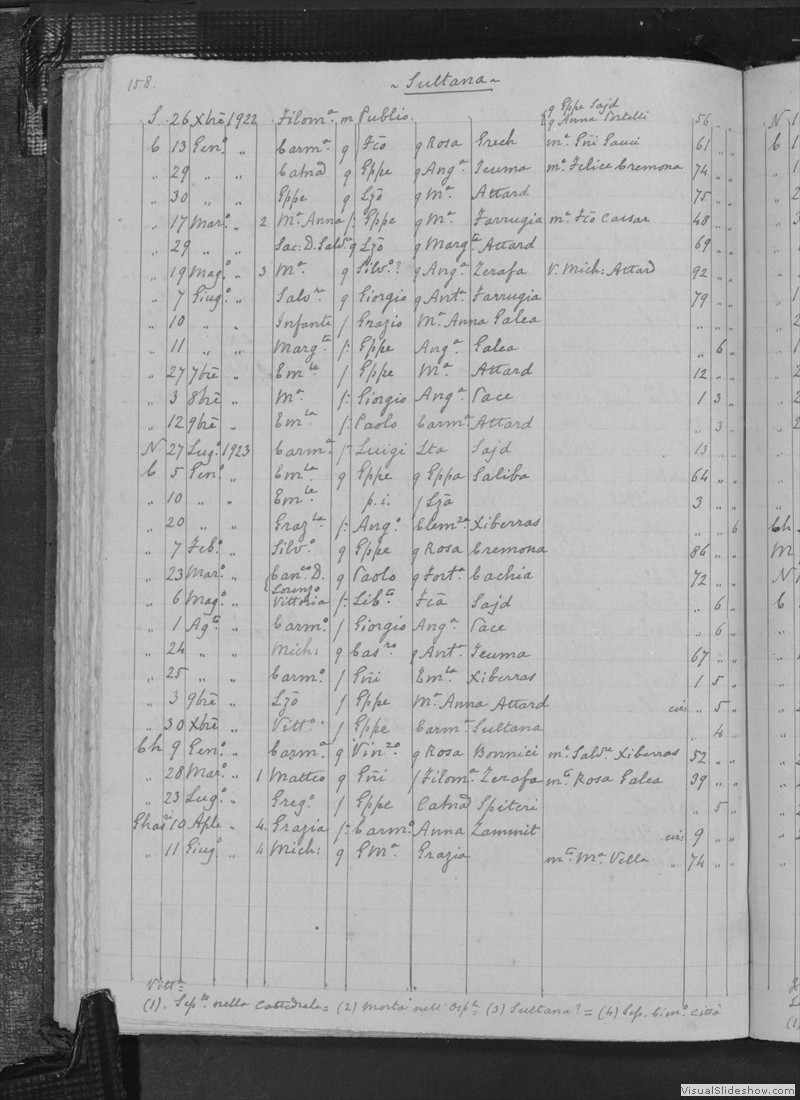 158.
~ Sultana ~
q Eppe Sajd
S. 26 Xbrē 1922 Filomª m Publio. q Anna Portelli 56 „ „
C 13 Genº „ Carmª q Fcō q Rosa Grech mª Gñi Gauci 61 „ „
„ 29 „ „ Catnª q Eppe q Angª Teuma mª Felice Cremona 74 „ „
„ 30 „ „ Eppe q Lzō q Mª Attard 75 „ „
„ 17 Marº „ 2 Mª Anna f: Eppe q Mª Farrugia mª Fcō Caesar 48 „ „
„ 29 „ „ Sac: D. Salvre q Lzō q Margta Attard 69 „ „
„ 19 Magº „ 3 Mª q Silvº? q Angª Zerafa V. Mich: Attard 92 „ „
„ 7 Giugº „ Salvre q Giorgio q Antª Farrugia 79 „ „
„ 10 „ „ Infante f Grazio Mª Anna Galea „ „ „
„ 11 „ „ Margta f: Eppe Angª Galea „ 6 „
„ 27 7brē „ Emle f Eppe Mª Attard 12 „ „
„ 3 8brē „ Mª f: Giorgio Angª Pace 1 3 „
„ 12 9brē „ Emla f: Paolo Carmª Attard „ 3 „
N. 27 Lugº 1923 Carmª f: Luigi Lta Sajd 13 „ „
C 5 Genº „ Emla q Eppe q Eppa Saliba 64 „ „
„ 10 „ „ Emle p. i. f Lzā 3 „ „
„ 20 „ „ Grazla f: Angº Clemza Xiberras „ „ 6
„ 7 Febº „ Silvº q Eppe q Rosa Cremona 86 „ „
„ 23 Marº „ Canco D. q Paolo q Fortª Cachia 72 „ „
Lorenzo
„ 6 Magº „ Vittoria f: Libto Fcā Sajd „ 6 „
„ 1 Agto „ Carmº f Giorgio Angª Pace „ 6 „
„ 24 „ „ Mich: q Casro q Antª Teuma 67 „ „
„ 25 „ „ Carmº f Gñi Emla Xiberras 1 5 „
„ 3 9brē „ Lzō f Eppe Mª Anna Attard cir: „ 5 „
„ 30 Xbrē „ Vittº f Eppe Carmª Sultana „ 4 „
Ch 9 Genº „ Carmª q Vinzo q Rosa Bonnici mª Salvre Xiberras 52 „ „
„ 28 Marº „ 1 Matteo q Gñi f Filomª Zerafa mto Rosa Galea 39 „ „
„ 23 Lugº „ Gregº f Eppe Catnª Spiteri „ 5 „
Ghasri 10 Aple „ 4 Grazia f: Carmº Anna Zammit cir: 9 „ „
„ 11 Giugº „ 4 Mich: q GMª Grazia mto Mª Vella 74 „ „
Vittª
(1). Septo nella Cattedrale = (2) Morta nell'Ospe (3) Sultana? = (4) Sep. Cimº Città
VisualSlideshow.com